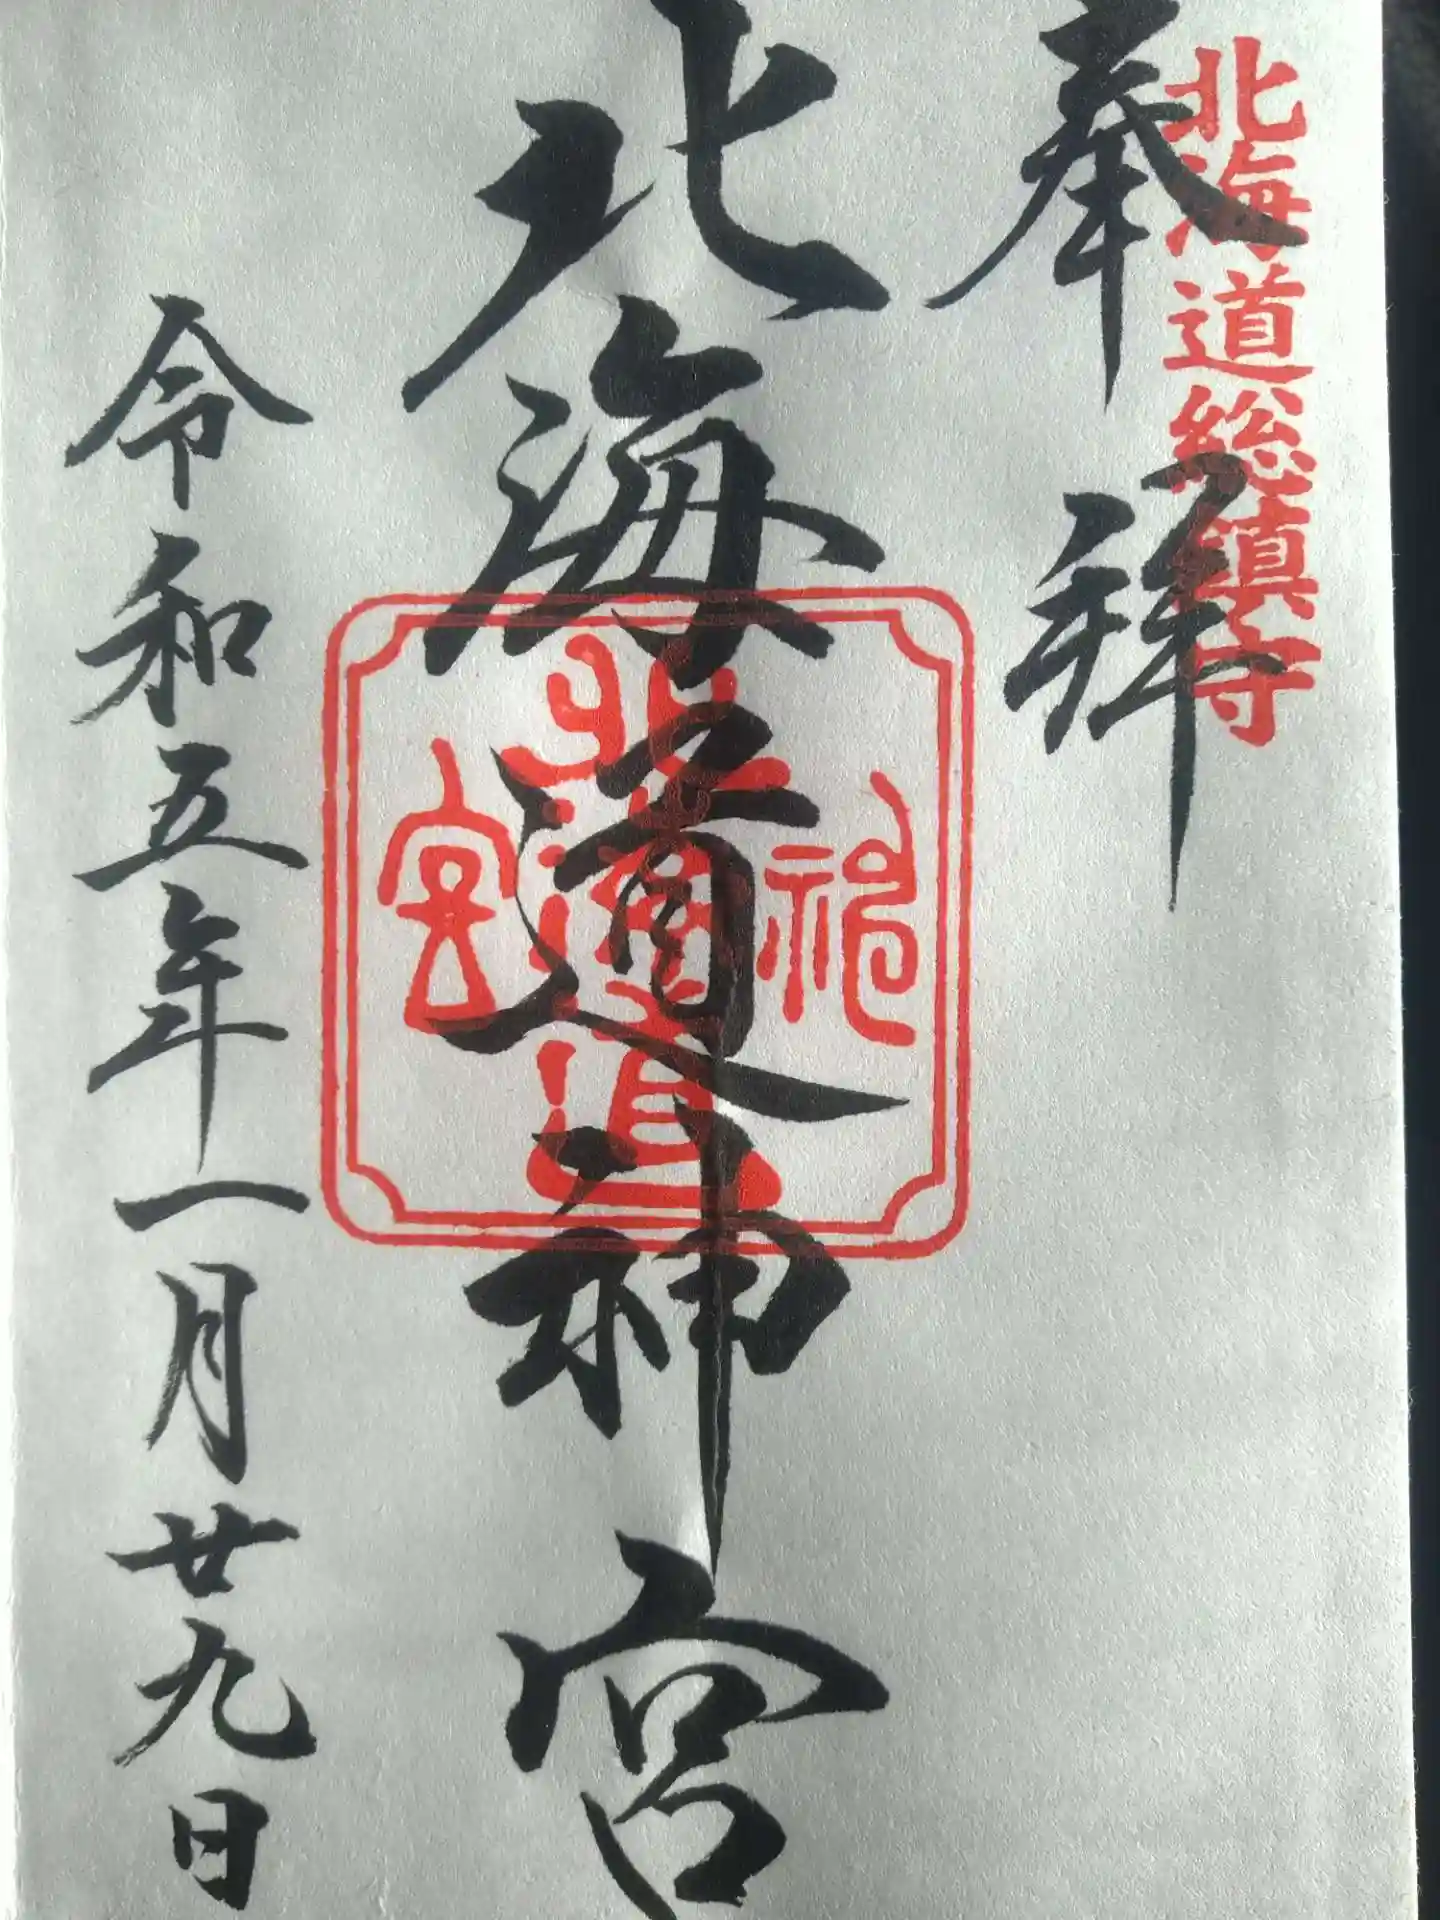 北海道総鎮守
奉拝
北海道神宮
北海道神宮
令和五年一月廿九日